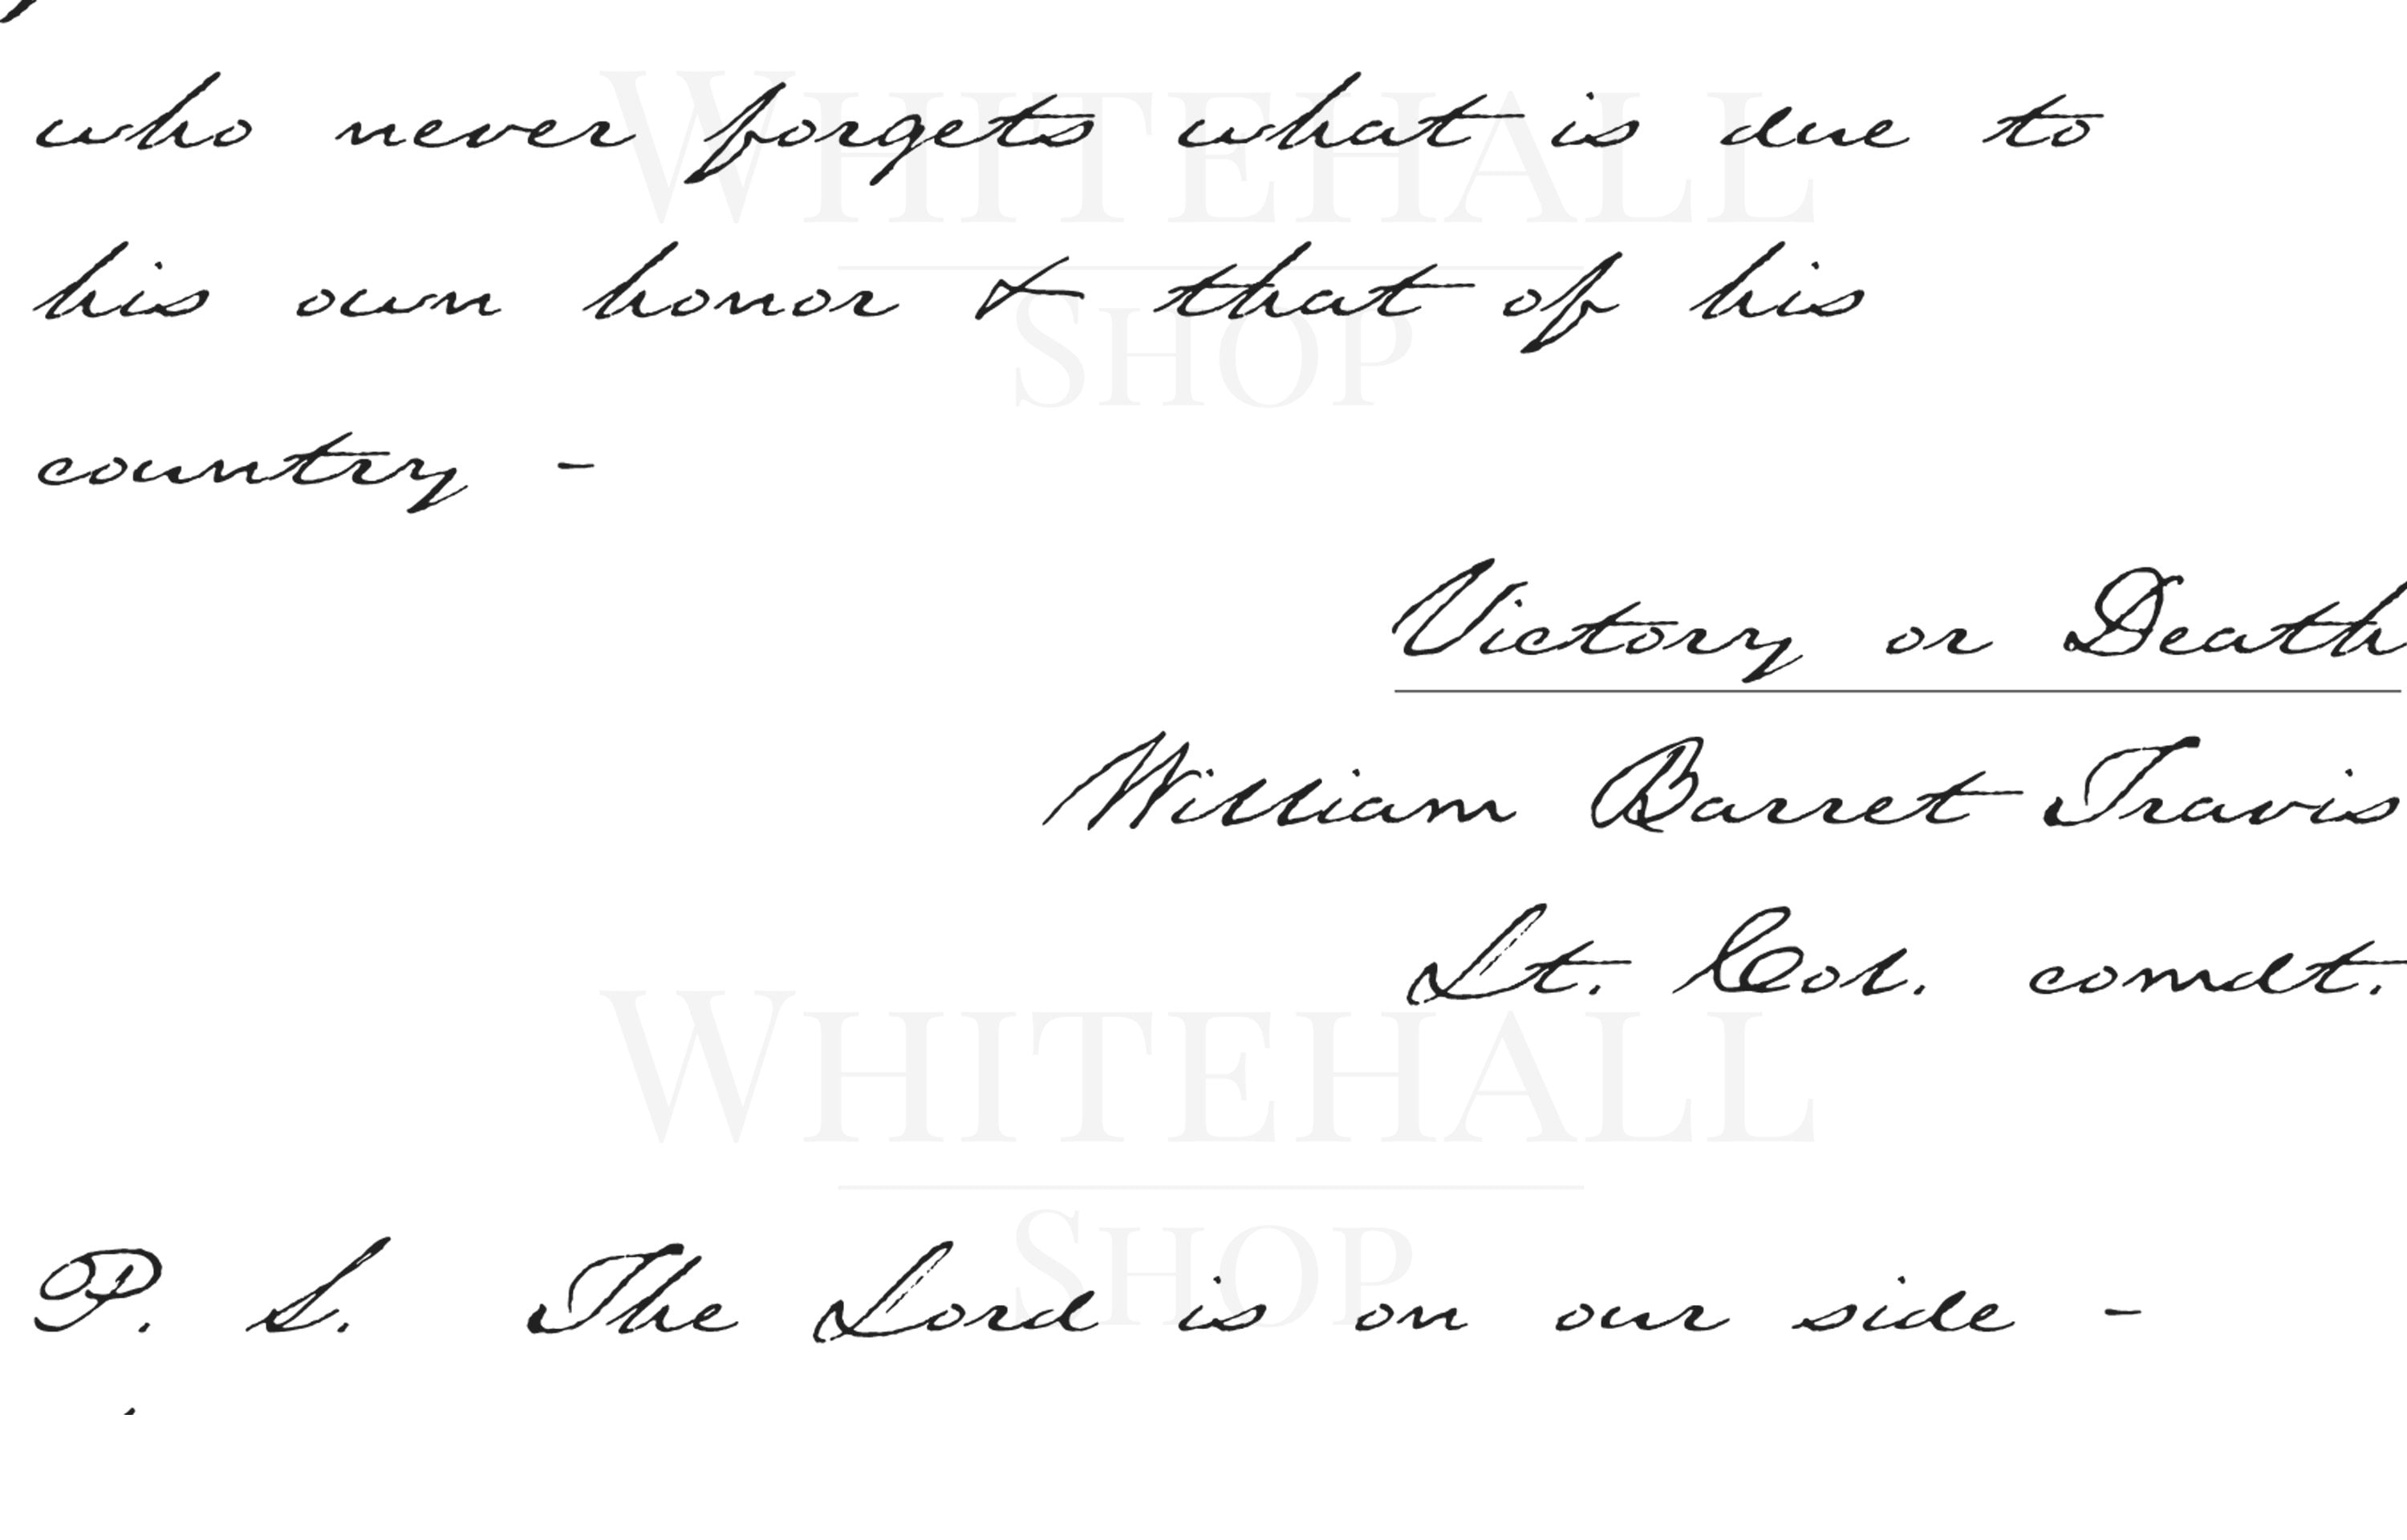 who never forgets what is due to
his own honor & that of his
country -
Victory or Death
William Barret Travis
Lt. Col. comdt.
P. S. The Lord is on our side -
WHITEHALL
SHOP
WHITEHALL
SHOP